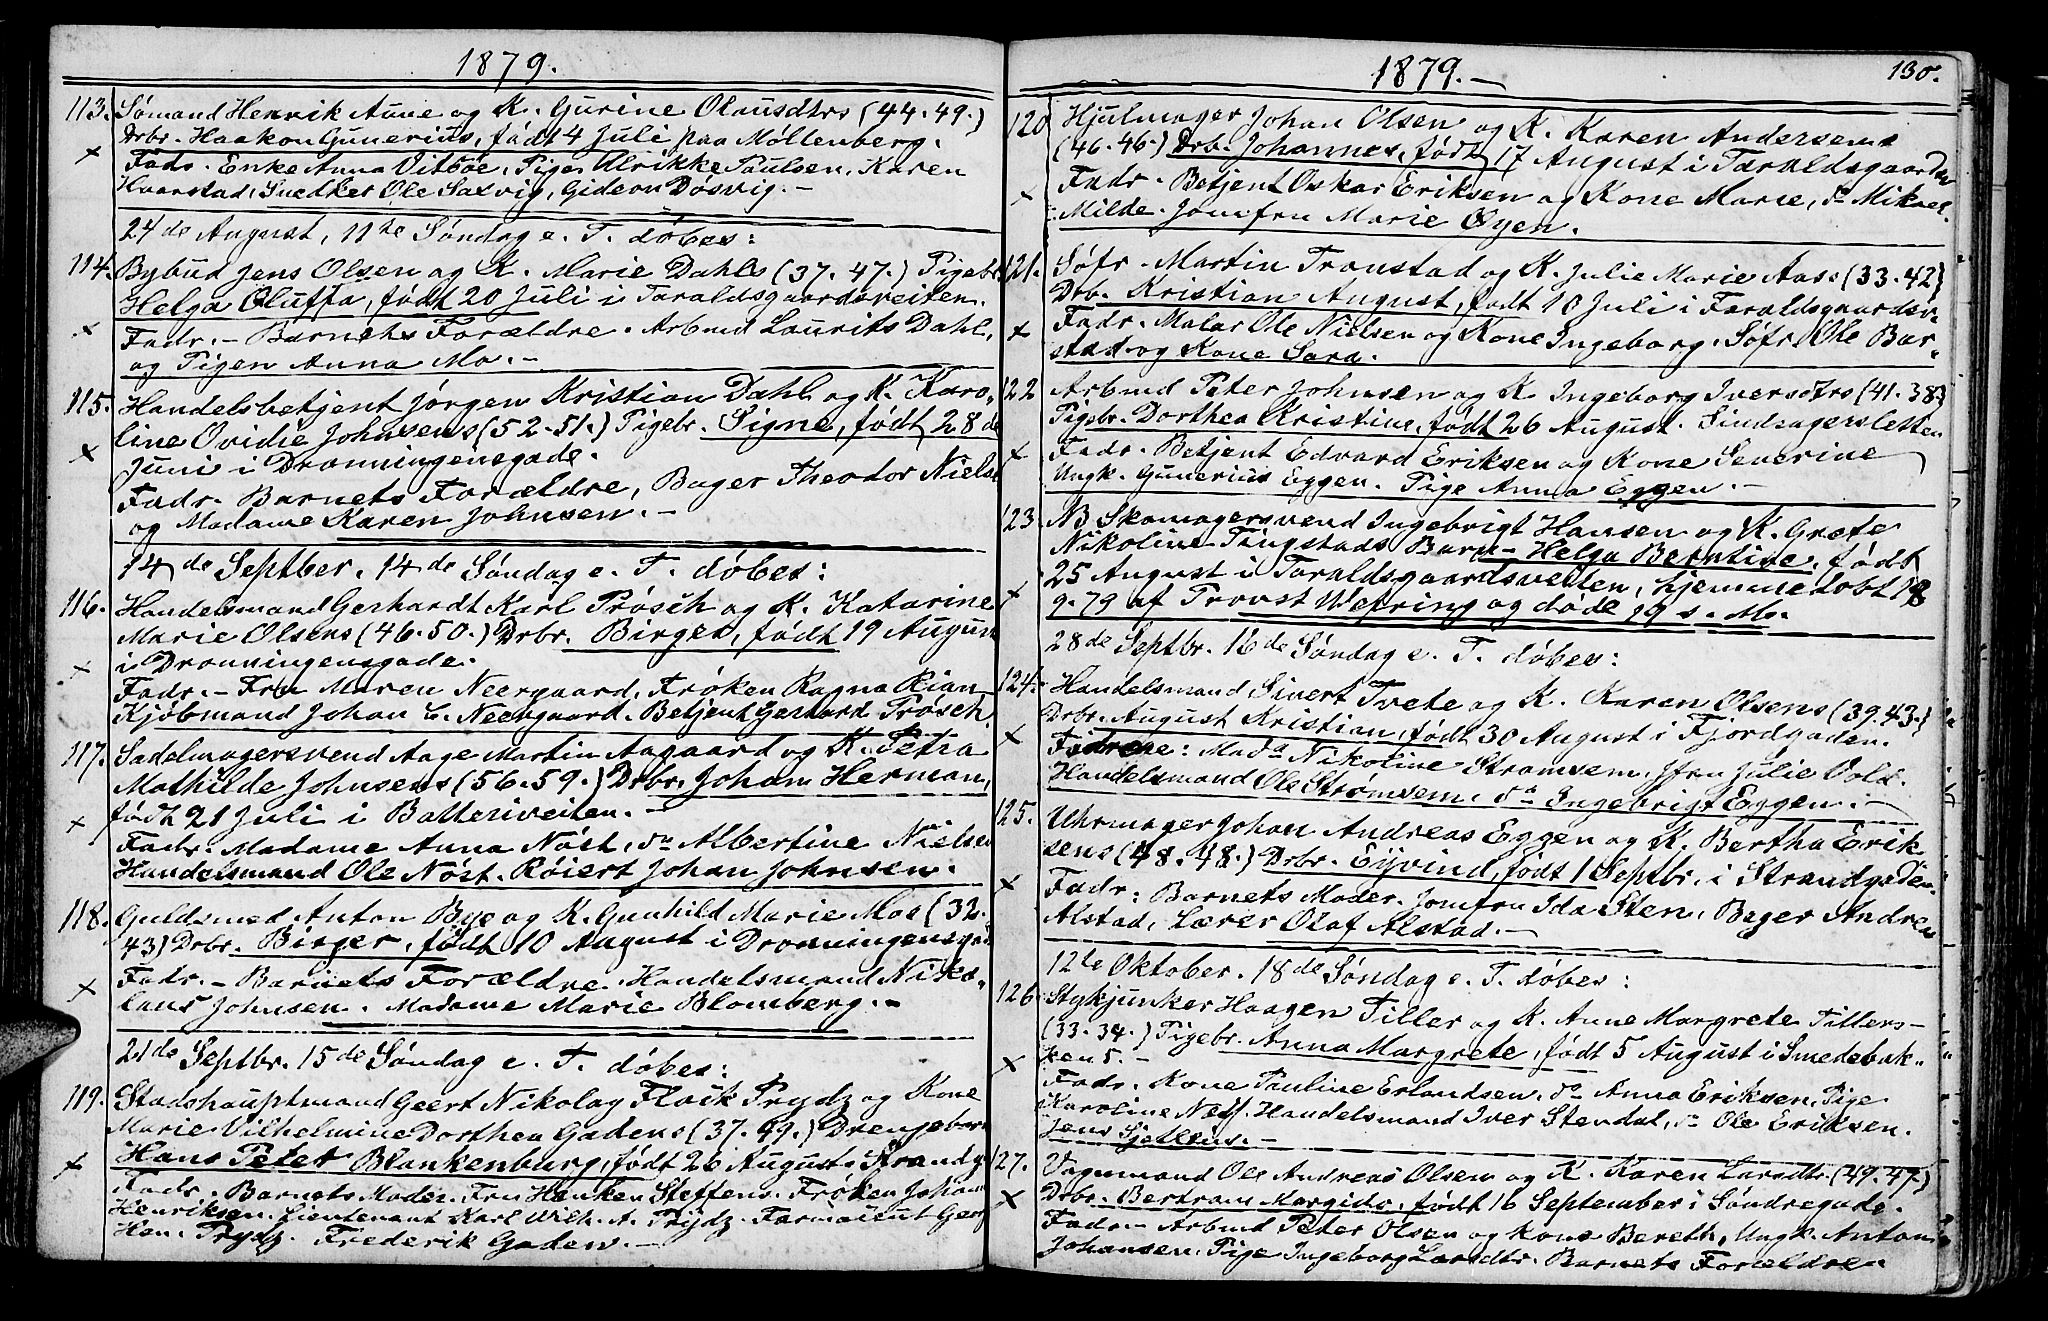 1879.
113. Sømand Henrik Aune og K. Gurine Olausdtrs (44.49.)
Drbr. Haakon Gunerius, født 4 Juli paa Møllenberg.
× Fadr. Enke Anna Vitsøe, Pigen Ulrikke Paulsen, Karen
Hvarstad, Snedker Ole Saxvig, Gideon Døsvig. –
24de August, 11te Søndag e. T. døbes:
114. Bybud Jens Olsen og K. Marie Dahls (37.47.) Pigebr.
Helga Oluffa, født 20 Juli i Taraldsgaardsveiten.
× Fadr. – Barnets Forældre. Arbmd Laurits Dahl,
og Pigen Anna Mo. –
115. Handelsbetjent Jørgen Kristian Dahl og K. Karo-
line Ovidie Johnsens (52.51.) Pigebr. Signe, født 28de
× Juni i Dronningensgade.
Fadr. Barnets Forældre, Bager Theodor Niels
og Madame Karen Johnsen. –
14de Septber. 14de Søndag e. T. døbes:
116. Handelsmand Gerhardt Karl Prøsch og K. Katarine
Marie Olsens (46.50.) Drbr. Birger, født 19 August
× i Dronningensgade.
Fadr. – Fru Maren Neergaard, Frøken Ragna Rian
Kjøbmand Johan C. Neergaard. Betjent Gerhard Prøsch
117. Sadelmagersvend Aage Martin Aagaard og K. Petra
Mathilde Johnsens (56.59.) Drbr. Johan Herman,
× født 21 Juli i Batteriveiten. –
Fadr. Madame Anna Nøst, do Albertine Nielsen
Handelsmand Ole Nøst. Røiert Johan Johnsen.
118. Guldsmed Anton Bye og K. Gunhild Marie Moe (32.
43) Drbr. Birger, født 10 August i Dronningensgade
× Fadr. – Barnets Forældre. Handelsmand Niko-
laus Johnsen. Madame Marie Blomberg. –
21de Septbr. 15de Søndag e. T. døbes:
119. Stadshauptmand Geert Nikolay Flock Prydz og Kone
Marie Vilhelmine Dorthea Gadens (37.49.) Drengebarn
× Hans Peter Blankenburg, født 26 August i Strandg
Fadr. Barnets Moder. Fru Henken Steffens. Frøken Johan
Henriksen. Lieutenant Karl Wilh. A. Prydz. Farmaceut Georg
Hen. Prydz. Frederik Gaden. –
1879. –
130.
120 Hjulmager Johan Olsen og K. Karen Andersens
(46.46.) Drb. Johannes, født 17 August i Taraldsgaardsv
× Fadr. Betjent Oskar Eriksen og Kone Marie, do Mikael
Milde. Jomfru Marie Øyen.
121. Søfr. Martin Tronstad og K. Julie Marie Aass (33.42)
Drb. Kristian August, født 10 Juli i Taraldsgaardsv.
× Fadr. Malar Ole Nielsen og Kone Ingeborg. Søfr. Ole Bar-
stad og Kone Sara.
122 Arbmd Peter Johnsen og K. Ingeborg Iversdtrs (41.38.)
Pigebr. Dorthea Kristine, født 26 August. Sindsagersletten
× Fadr. Betjent Edvard Eriksen og Kone Severine
Ungk. Gunerius Eggen. Pige Anna Eggen. –
123. NB Skomagersvend Ingebrigt Hansen og K. Grete
Nikoline Tingstads Barn – Helga Berntine, født
× 25 August i Taraldsgaardsveiten, hjemmedøbt 18
9.79 af Provst Wexring og døde 19 s. M.
28de Septbr. 16de Søndag e. T. døbes:
124. Handelsmand Sivert Tvete og K. Karen Olsens (39.43.)
× Drbr. August Kristian, født 30 August i Fjordgaden.
Faddere: Mada Nikoline Strømsem, Jfru Julie Vold.
Handelsmand Ole Strømsem, do Ingebrigt Eggen. –
125. Uhrmager Johan Andreas Eggen og K. Bertha Erik
sens (48.48.) Drbr. Eyvind, født 1 Septbr. i Strandgaden
× Fadr: Barnets Moder. Jomfru Ida Sten, Bager Andreas
Alstad, Lærer Olaf Alstad. –
12te Oktober. 18de Søndag e. T. døbes:
126. Stykjunker Haagen Tiller og K. Anne Margrete Tillers –
(33.34.) Pigebr. Anna Margrete, født 5 August i Smedebak-
× ken 5. –
Fadr. Kone Pauline Erlandsen, do Anna Eriksen, Pige
Karoline Næss. Handelsmand Iver Stendal, do Ole Eriksen.
Jens Sjetlius. –
127. Vognmand Ole Andreas Olsen og K. Karen Larsdtr. (49.47.)
× Drbr. Bertram Margido, født 16 September i Søndregade.
Fadr. – Arbmd Peter Olsen og Kone Bereth, Ungk. Anton
Johansen. Pige Ingeborg Larsdtr. Barnets Forældre.